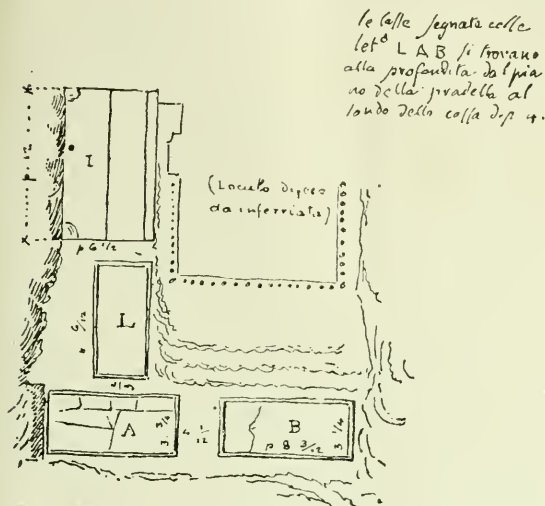 le casse segnate colle
let.e L A B si trovano
alla profondita dal pia
no della pradella al
fondo della cassa di p. 4.
p. 12
I
(Loculo difeso
da inferriata)
p 6 1/2
L
A
3 3/4
4 1/12
B
p 8 3/12
3 1/4